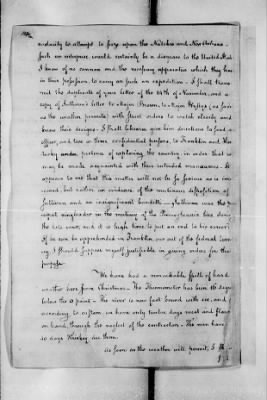 audacity to attempt to force upon the Natches and New Orleans.
Such an enterprise would certainly be a disgrace to the United States
I know of no cannon and the necessary apparatus which they have
in their possession to carry on such an expedition. I shall trans-
mit the duplicate of your letter of the 14th of November, and a
copy of Sullivan's letter to Major Brown, to Major Wyllys (as soon
as the weather permits) with strict orders to watch closely and
know their designs. I shall likewise give him directions to send an
officer, and two or three confidential persons, to Franklin and Ken-
tucky under pretense of exploring the country, in order that he
may be made acquainted with their intended movements. It
appears to me that this matter will not be so serious as is con-
ceived, but rather an evidence of the mutinous disposition of
Sullivan and an insignificant banditti. This man was the prin-
cipal ringleader in the mutiny of the Pennsylvania line during
the late war, and it is high time to put an end to his career.
If he can be apprehended in Franklin, or out of the federal terri-
tory, I should suppose myself justifiable in giving orders for the
purpose.
We have had a remarkable spell of hard
weather here since Christmas. The Thermometer has been 16 degs
below the 0 point. The river is now fast bound with ice, and,
according to custom we have only twelve days meat and flour
on hand, through the neglect of the contractors. The men have
30 days Whiskey due them.
As soon as the weather will permit, I